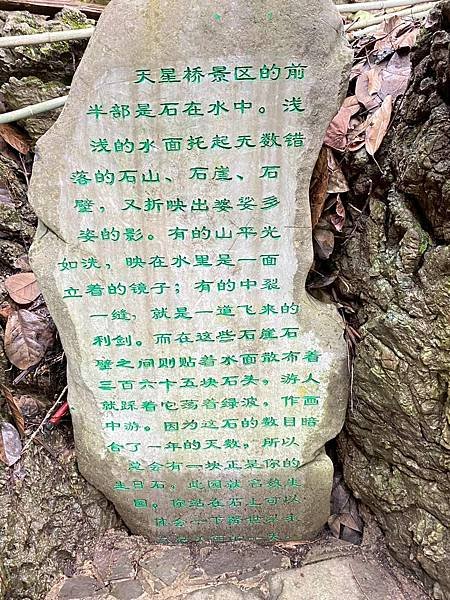 天星桥景区的前
半部是石在水中。浅
浅的水面托起无数错
落的石山、石崖、石
壁，又折映出婆娑多
姿的影。有的山平光
如洗，映在水里是一面
立着的镜子；有的中裂
一缝，就是一道飞来的
利剑。而在这些石崖石
壁之间则贴着水面散布着
三百六十五块石头，游人
就踩着它荡着绿波。作画
中游。因为这石的数目暗
合了一年的天数，所以
总会有一块正是你的
生日石，此园就名数生
园。你站在石上可以
体会一下新世界